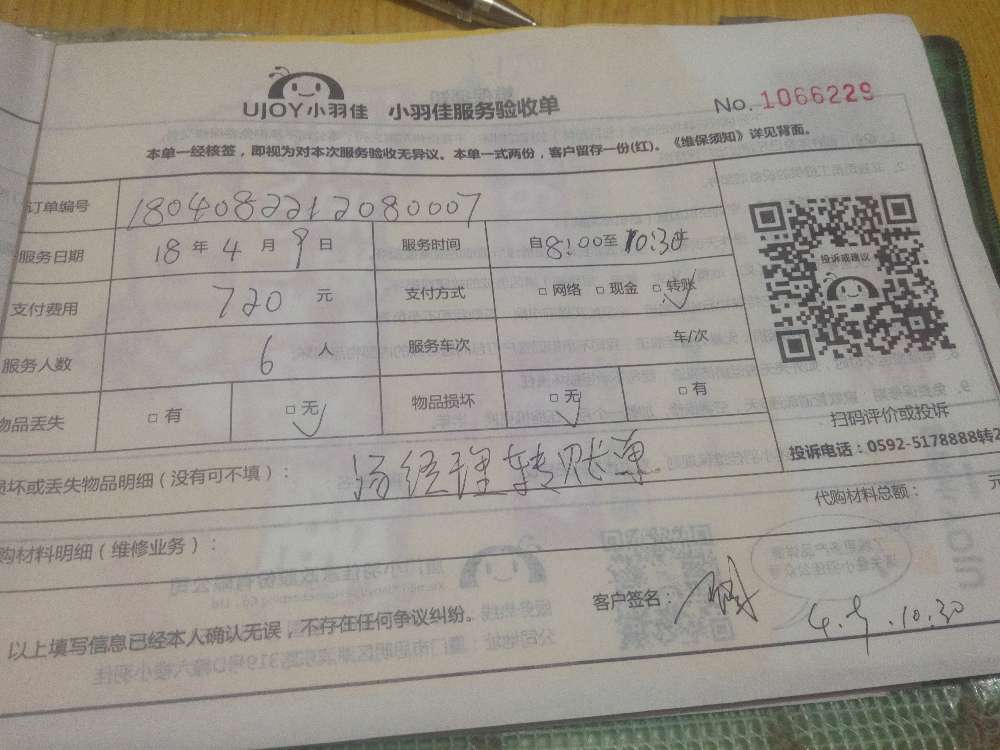 UJOY小羽佳 小羽佳服务验收单 No. 1066229
本单一经核签，即视为对本次服务验收无异议。本单一式两份，客户留存一份(红)。《维保须知》详见背面。
订单编号 1804082212080007
服务日期 18 年 4 月 9 日 服务时间 自8:00至10:30止
支付费用 720 元 支付方式 □ 网络 □ 现金 □ 转账
服务人数 6 人 服务车次 车/次
物品丢失 □ 有 □ 无 物品损坏 □ 无 □ 有
投诉或建议
扫码评价或投诉
投诉电话：0592-5178888转2
损坏或丢失物品明细（没有可不填）： 经理转账单
代购材料总额： 元
购材料明细（维修业务）：
客户签名：
以上填写信息已经本人确认无误，不存在任何争议纠纷。